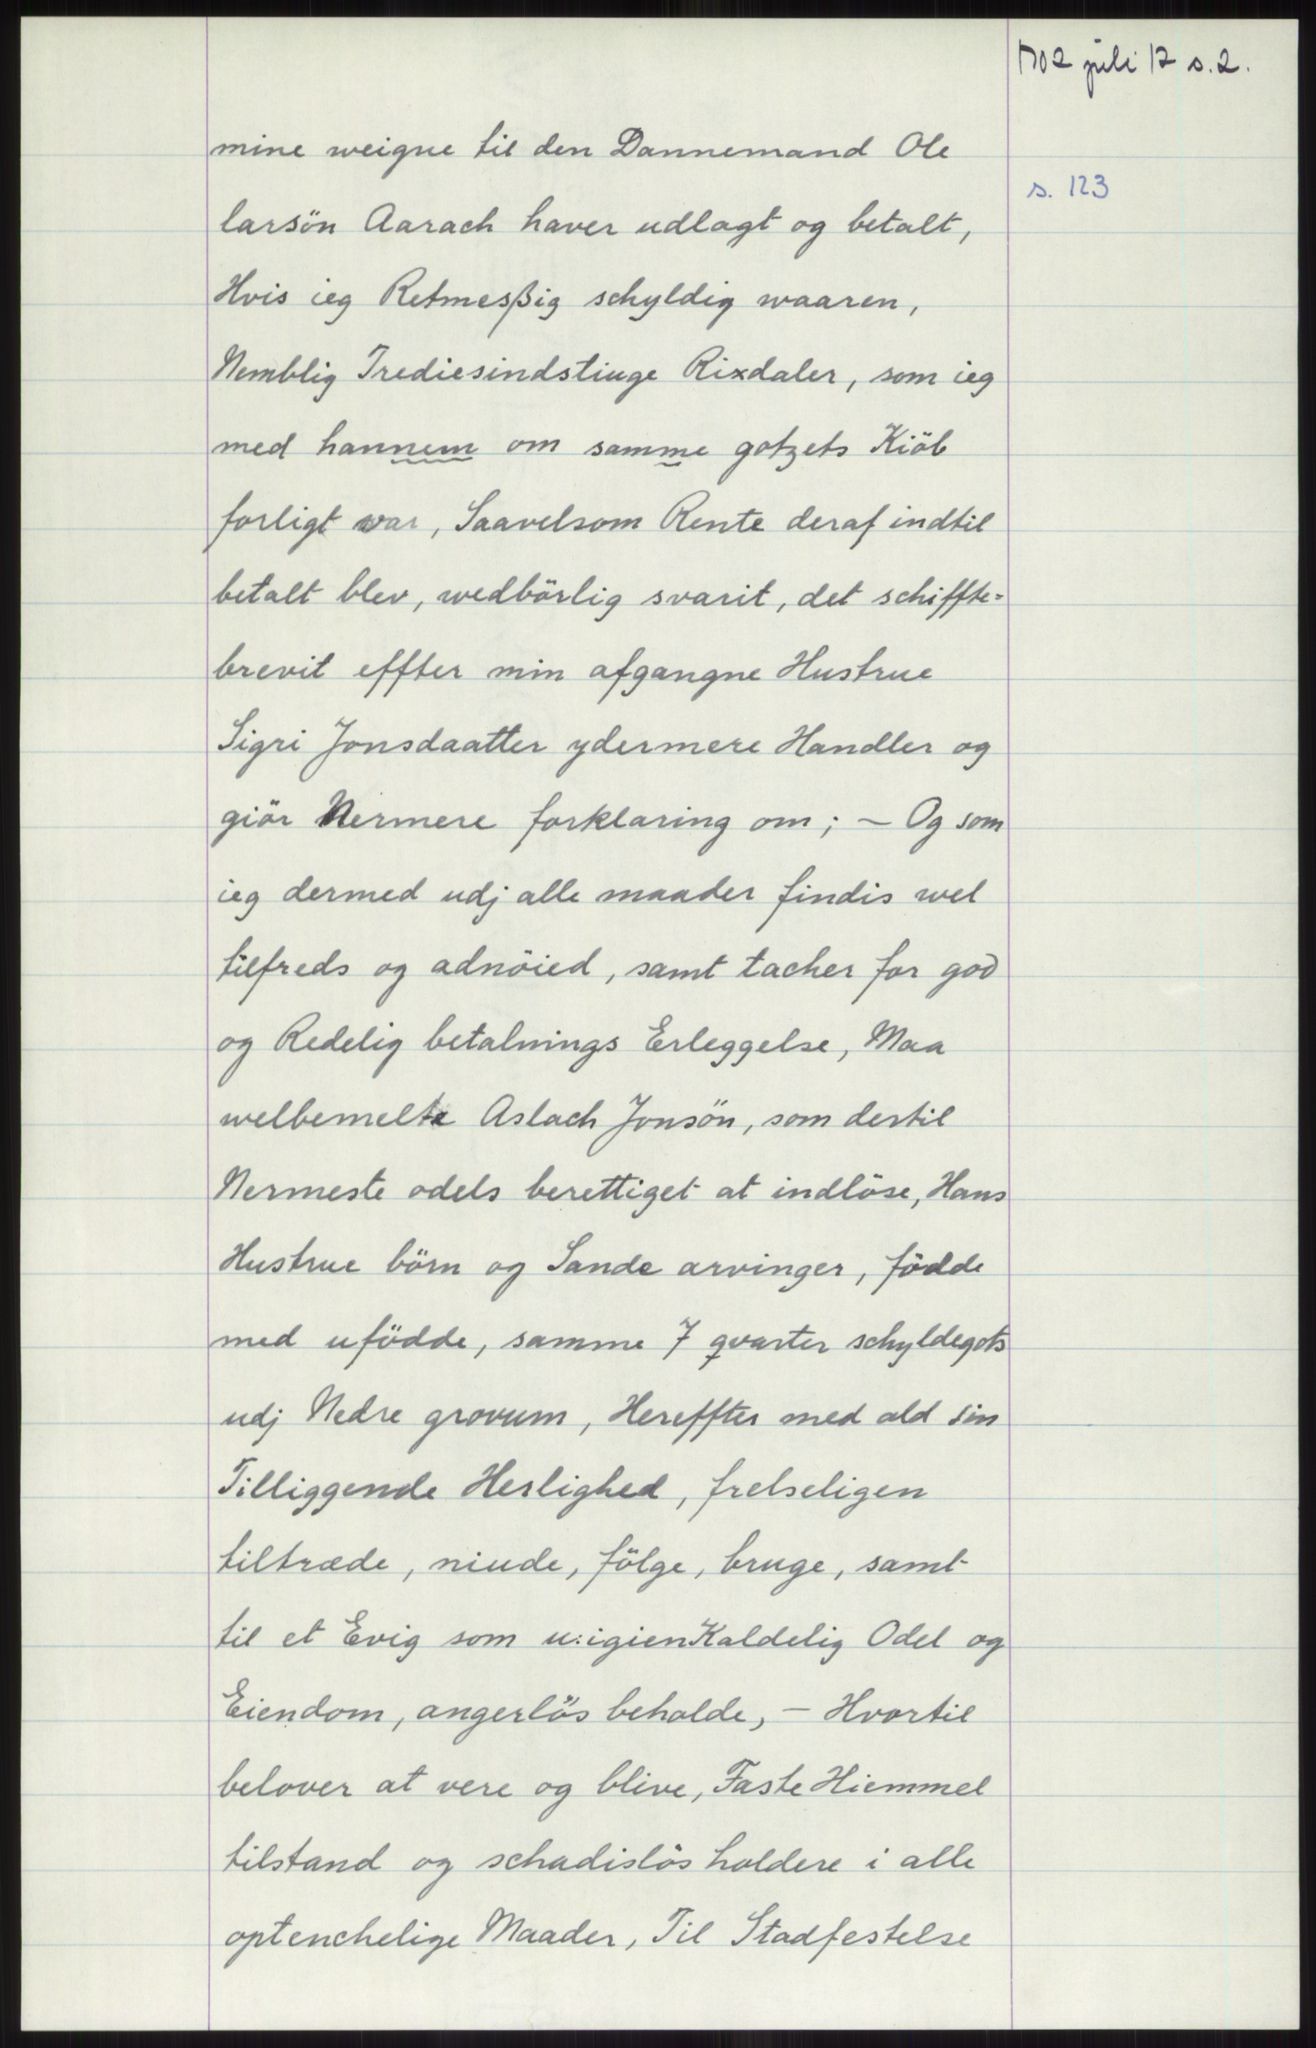 1702 juli 12 s.2.
s. 123
mine weigne til den Dannemand Ole
larsön Aarach haver udlagt og betalt,
Hvis ieg Retmesßig schyldig waaren,
Nemblig Trediesindstiuge Rixdaler, som ieg
med hannem om samme gotzets Kiöb
forligt war, Saavelsom Rente deraf indtil
betalt blev, wedbörlig svarit, det schiffte=
brevit effter min afgangne Hustrue
Sigri Jonsdaatter ydermere Handler og
giör Nermere forklaring om; – Og som
ieg dermed udj alle maader findis wel
tilfreds og adnöied, samt tacher for god
og Redelig betalnings Erleggelse, Maa
welbemelte Aslach Jonsön, som dertil
Nermeste odels berettiget at indlöse, Hans
Hustrue börn og Sande arvinger, födde
med ufödde, samme 7 qvarter schyldegots
udj Nedre grovum, Hereffter med ald sin
Tilliggende Herlighed, frelseligen
tiltræde, niude, fölge, bruge, samt
til et Evig som u:igienKaldelig Odel og
Eiendom, angerlös beholde, – Hvortil
belover at vere og blive, Faste Hiemmel
tilstand og schadislös holdere i alle
optenchelige Maader, Til Stadfestelse